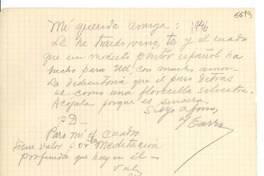 Mi querida amiga: 1946
Le he traido, vino, te y el cuadro
que un modesto pintor español ha
hecho para Ud, con mucho amor.
La dedicatoria que el puso detras
es como una florecilla silvestre.
Acójala porque es sincera.
Suyo afmo,
P.D.—
Para mi el cuadro
tiene valor por la meditación
profunda que hay en el.
Vale